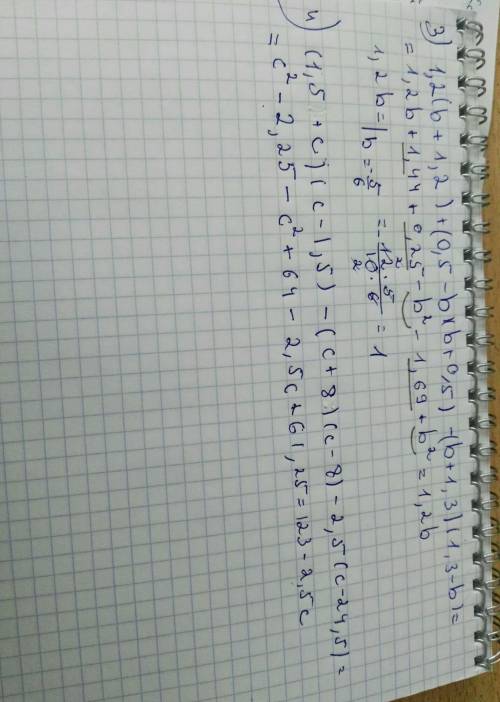 3) 1,2(b + 1,2) + (0,5 - b)(b + 0,5) - (b + 1,3)(1,3 - b) =
= 1,2b + 1,44 + 0,25 - b² - 1,69 + b² = 1,2b
1,2b = |b = -5/6 = -12·5/10·6 = 1
4) (1,5 + c)(c - 1,5) - (c + 8)(c - 8) - 2,5(c - 24,5) =
= c² - 2,25 - c² + 64 - 2,5c + 61,25 = 123 - 2,5c